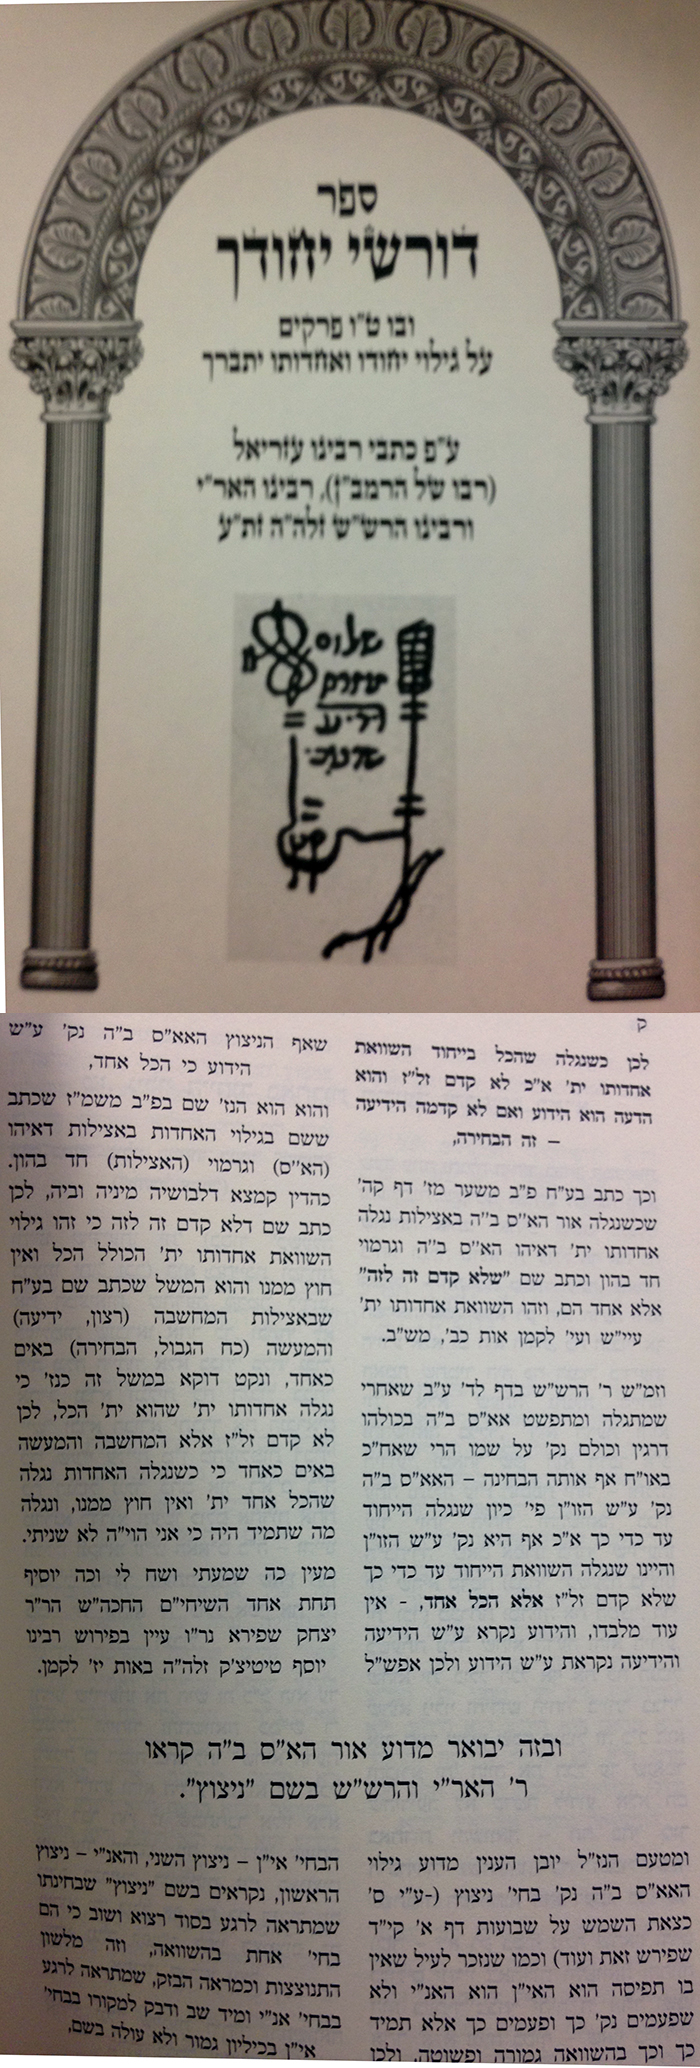 ספר
דורשי יחודך
ובו ט"ו פרקים
על גילוי יחודו ואחדותו יתברך
ע"פ כתבי רבינו עזריאל
(רבו של הרמב"ן), רבינו האר"י
ורבינו הרש"ש זלה"ה זת"ע
שלום
ק
לכן כשנגלה שהכל בייחוד השוואת
אחדותו ית' א"כ לא קדם זל"ז והוא
הדעה הוא הידוע ואם לא קדמה הידיעה
– זה הבחירה,
וכך כתב בע"ח פ"ב משער מז' דף קה'
שכשנגלה אור הא"ס ב"ה באצילות נגלה
אחדותו ית' דאיהו הא"ס ב"ה וגרמוי
חד בהון וכתב שם "שלא קדם זה לזה"
אלא אחד הם, וזהו השוואת אחדותו ית'
עיי"ש ועי' לקמן אות כב', מש"ב.
וזמ"ש ר' הרש"ש בדף לד' ע"ב שאחרי
שמתגלה ומתפשט אא"ס ב"ה בכולהו
דרגין וכולם נק' על שמו הרי שאח"כ
באו"ח אף אותה הבחינה – האא"ס ב"ה
נק' ע"ש הזו"ן פי' כיון שנגלה הייחוד
עד כדי כך א"כ אף היא נק' ע"ש הזו"ן
והיינו שנגלה השוואת הייחוד עד כדי כך
שלא קדם זל"ז אלא הכל אחד, - אין
עוד מלבדו, והידוע נקרא ע"ש הידיעה
והידיעה נקראת ע"ש הידוע ולכן אפש"ל
שאף הניצוץ האא"ס ב"ה נק' ע"ש
הידוע כי הכל אחד,
והוא הוא הנז' שם בפ"ב משמ"ז שכתב
ששם בגילוי האחדות באצילות דאיהו
(הא"ס) וגרמוי (האצילות) חד בהון.
כהדין קמצא דלבושיה מיניה וביה, לכן
כתב שם דלא קדם זה לזה כי זהו גילוי
השוואת אחדותו ית' הכולל הכל ואין
חוץ ממנו והוא המשל שכתב שם בע"ח
שבאצילות המחשבה (רצון, ידיעה)
והמעשה (כח הגבול, הבחירה) באים
כאחד, ונקט דוקא במשל זה כנז' כי
נגלה אחדותו ית' שהוא ית' הכל, לכן
לא קדם זל"ז אלא המחשבה והמעשה
באים כאחד כי כשנגלה האחדות נגלה
שהכל אחד ית' ואין חוץ ממנו, ונגלה
מה שתמיד היה כי אני הוי"ה לא שניתי.
מעין כה שמעתי ושח לי וכה יוסיף
תחת אחד השיחי"ם החכה"ש הר"ר
יצחק שפירא נר"ו עיין בפירוש רבינו
יוסף טיטיצ'ק זלה"ה באות יז' לקמן.
ובזה יבואר מדוע אור הא"ס ב"ה קראו
ר' האר"י והרש"ש בשם "ניצוץ".
ומטעם הנז"ל יובן הענין מדוע גילוי
האא"ס ב"ה נק' בחי' ניצוץ (-ע"י ס'
כצאת השמש על שבועות דף א' קי"ד
שפירש זאת ועוד) וכמו שנזכר לעיל שאין
בו תפיסה הוא האי"ן הוא האנ"י ולא
שפעמים נק' כך ופעמים כך אלא תמיד
כך וכך בהשוואה גמורה ופשוטה, ולכן
הבחי' אי"ן – ניצוץ השני, והאנ"י – ניצוץ
הראשון, נקראים בשם "ניצוץ" שבחינתו
שמתראה לרגע בסוד רצוא ושוב כי הם
בחי' אחת בהשוואה, וזה מלשון
התנוצצות וכמראה הבזק, שמתראה לרגע
בבחי' אנ"י ומיד שב ודבק למקורו בבחי'
אי"ן בכיליון גמור ולא עולה בשם,